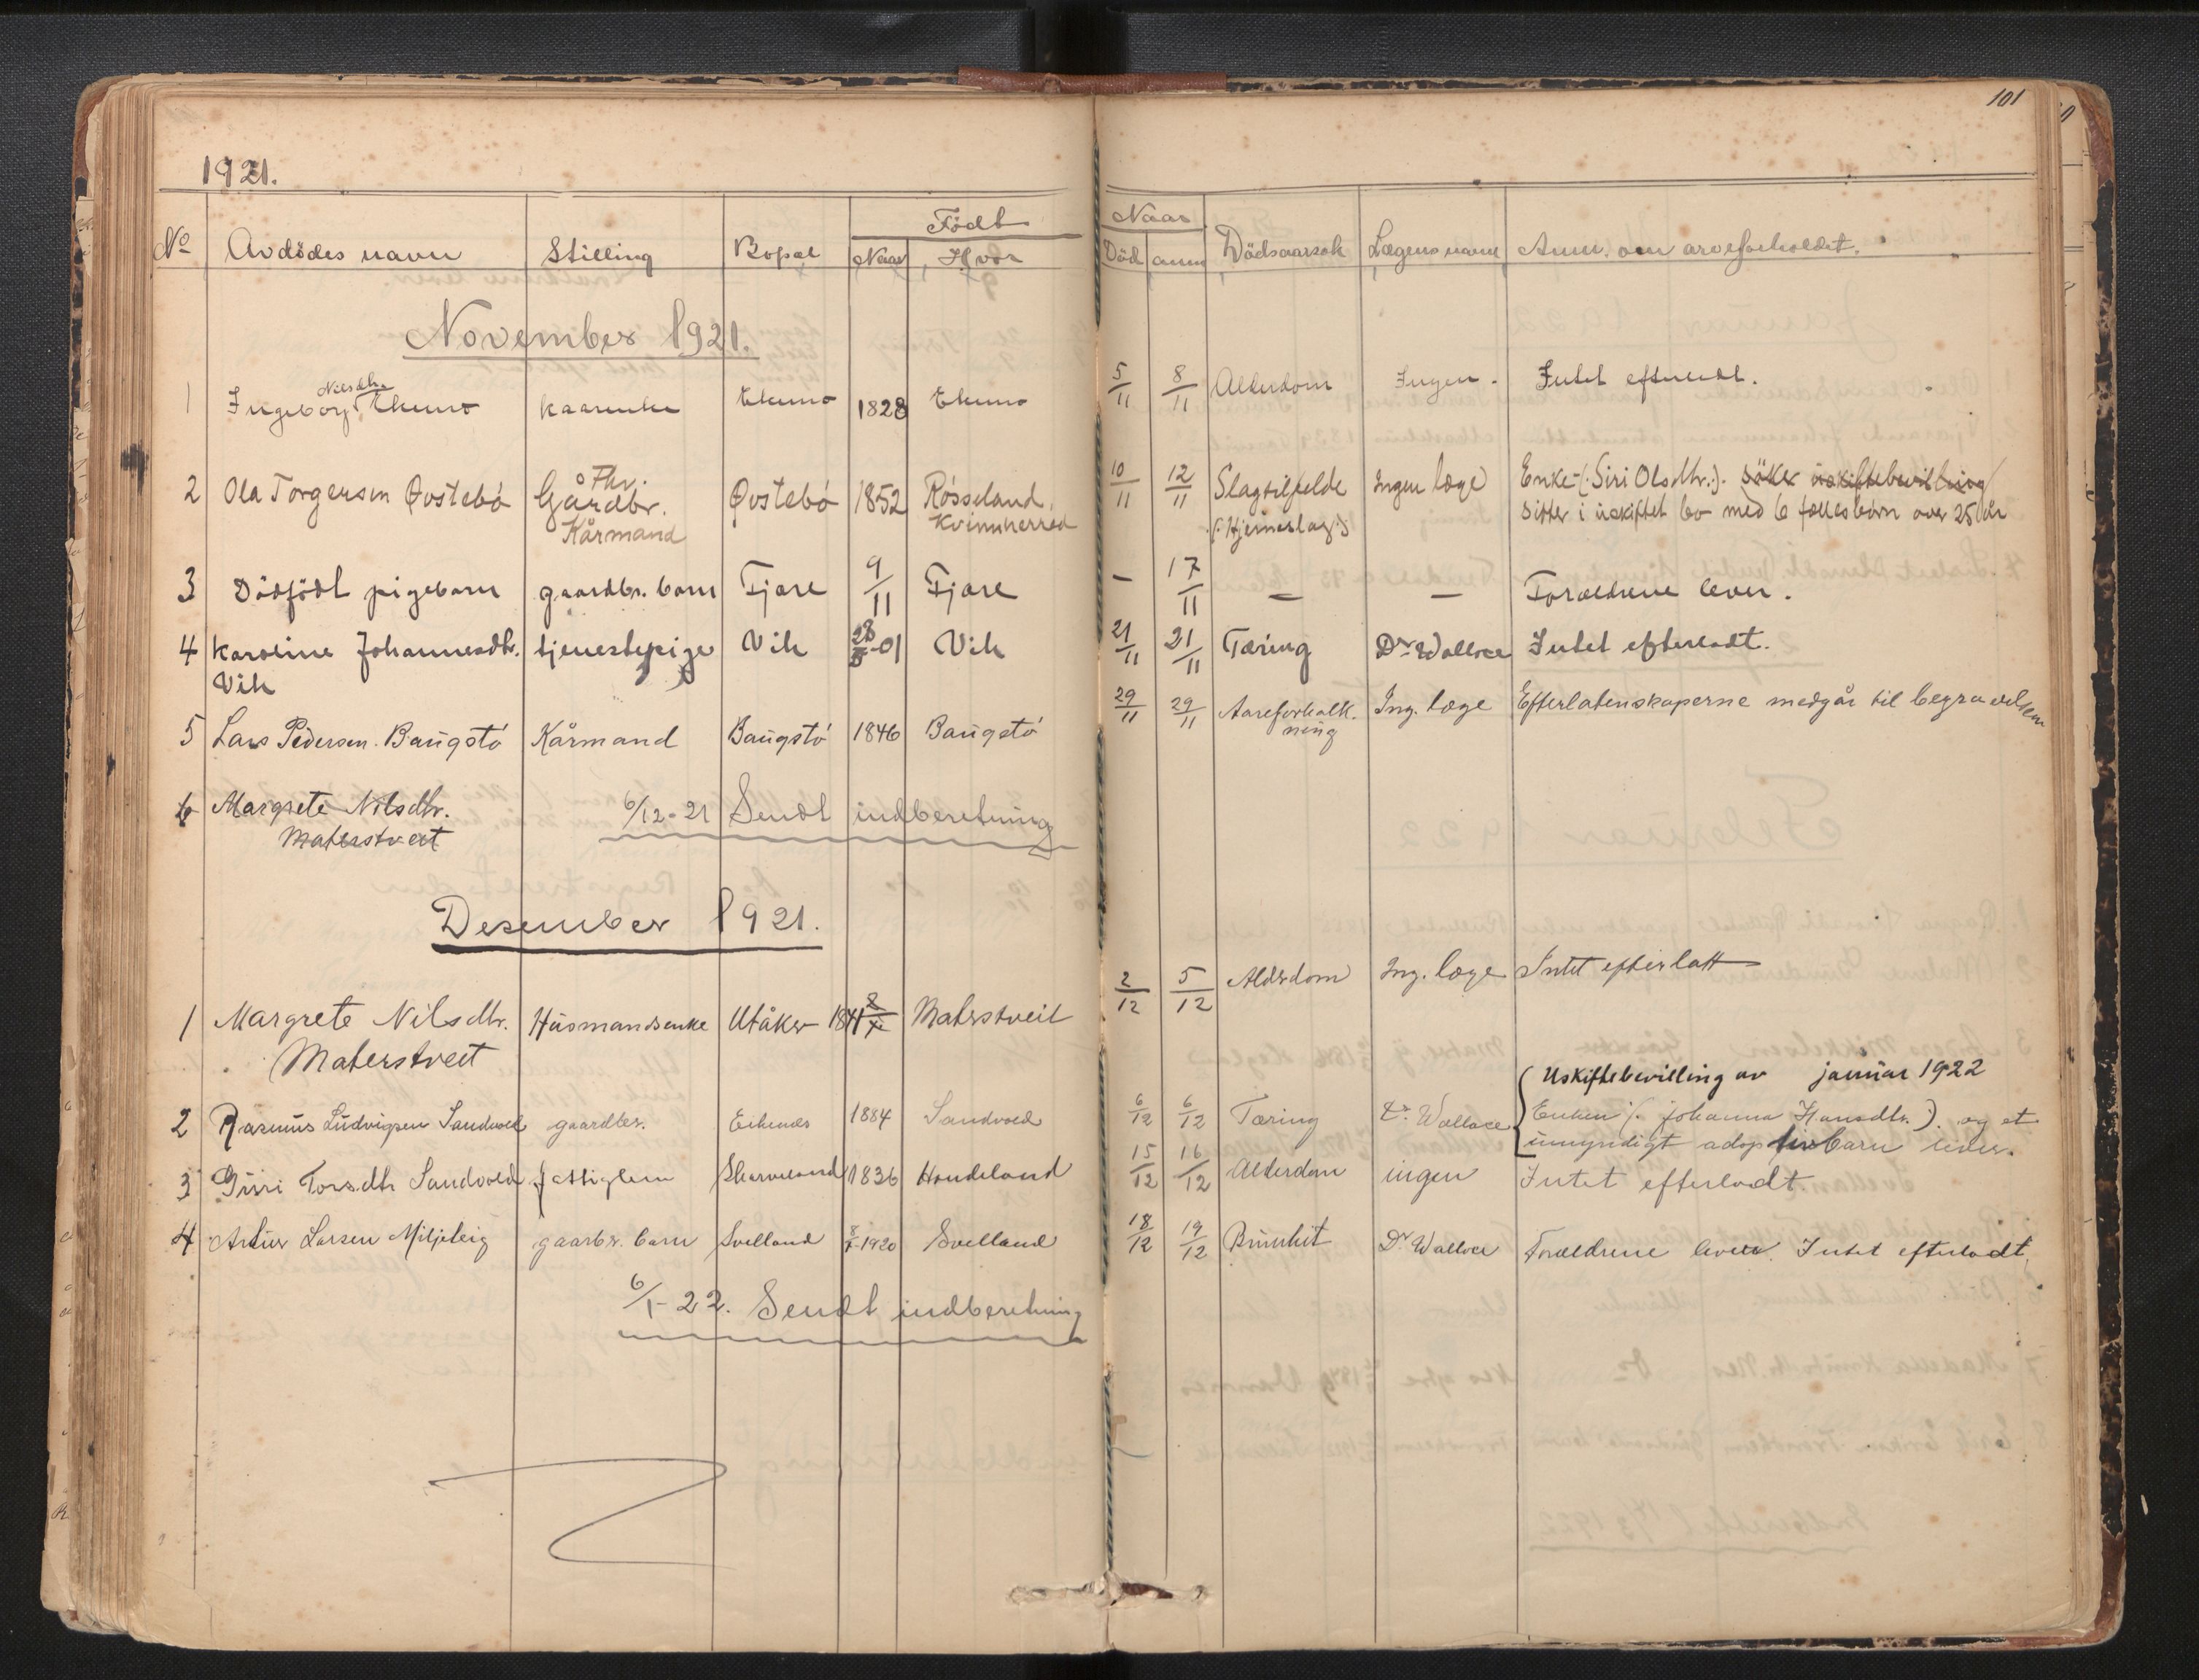 101
1921.
Födt
Naar
No Avdödes navn Stilling Bopæl Naar Hvor Död anm Dödsaarsak Lægens navn Anm. om arveforholdet.
November 1921.
Nilsdtr.
1 Ingeborg kaarenke 1828 5/11 8/11 Alderdom Ingen. Intet efterladt.
2 Ola Torgersen Östebö Gårdbr. Östebö 1852 Rösseland, 10/11 12/11 Slagtilfelde Ingen læge Enke (: Siri Olsdtr.:). söker uskiftebevilling
Kårmand Kvinnherred (: Hjerneslag:) sitter i uskiftet bo med 6 fællesbörn over 25 år
3 Dödfödt pigebarn gaardbr. barn Fjære 9/11 Fjære — 17/11 — — Forældrene lever.
4 Karoline Johannesdtr. tjenestepige Vik 28/5-01 Vik 21/11 21/11 Tæring Dr Wallace Intet efterladt.
Vik
5 Lars Pedersen Baugstö Kårmand Baugstö 1846 Baugstö 29/11 29/11 Aareforkalk- Ing. læge Efterlatenskaperne medgår til begravelsen
ning
6 Margrete Nilsdtr. 6/12-21 Sendt indberetning
Matrstveit
Desember 1921.
1 Margrete Nilsdtr. Husmandsenke Utåker 1841 Matrstveit 2/12 5/12 Alderdom Ing. læge Intet efterlatt
Materstveit
Uskiftebevilling av januar 1922
2 Rasmus Ludvigsen Sandvold gaardbr. Eikenes 1884 Sandvold 6/12 6/12 Tæring Dr Wallace Enken (: Johanna Hansdtr. :) og et
umyndigt adoptivbarn lever.
3 Guri Torsdtr Sandvold fattiglem Skarveland 1836 Handeland 15/12 16/12 Alderdom ingen Intet efterladt.
4 Artur Larsen Miljeteig gaarbr. barn Svelland 1920 Svelland 18/12 19/12 Bronkit Dr Wallace Forældrene lever. Intet efterladt.
6/1-22. Sendt indberetning